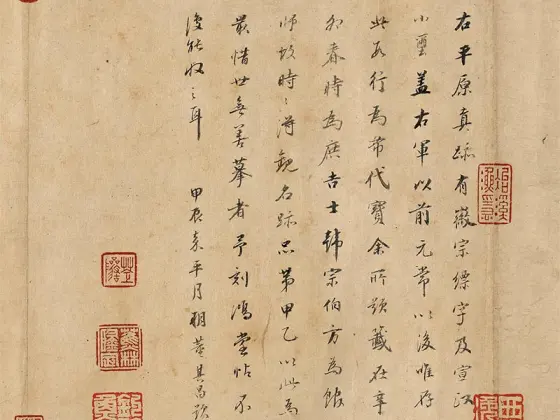 右平原真跡有徽宗縹字及宣和
小璽蓋右軍以前元常以後唯存
此數行為希代寶余所題籤在辛
卯春時為庶吉士韓宗伯方為館
師故時〻得觀名跡品第甲乙以此為
最惜世無善摹者予刻鴻堂帖不
復能收之耳 甲辰嘉平月朔董其昌題